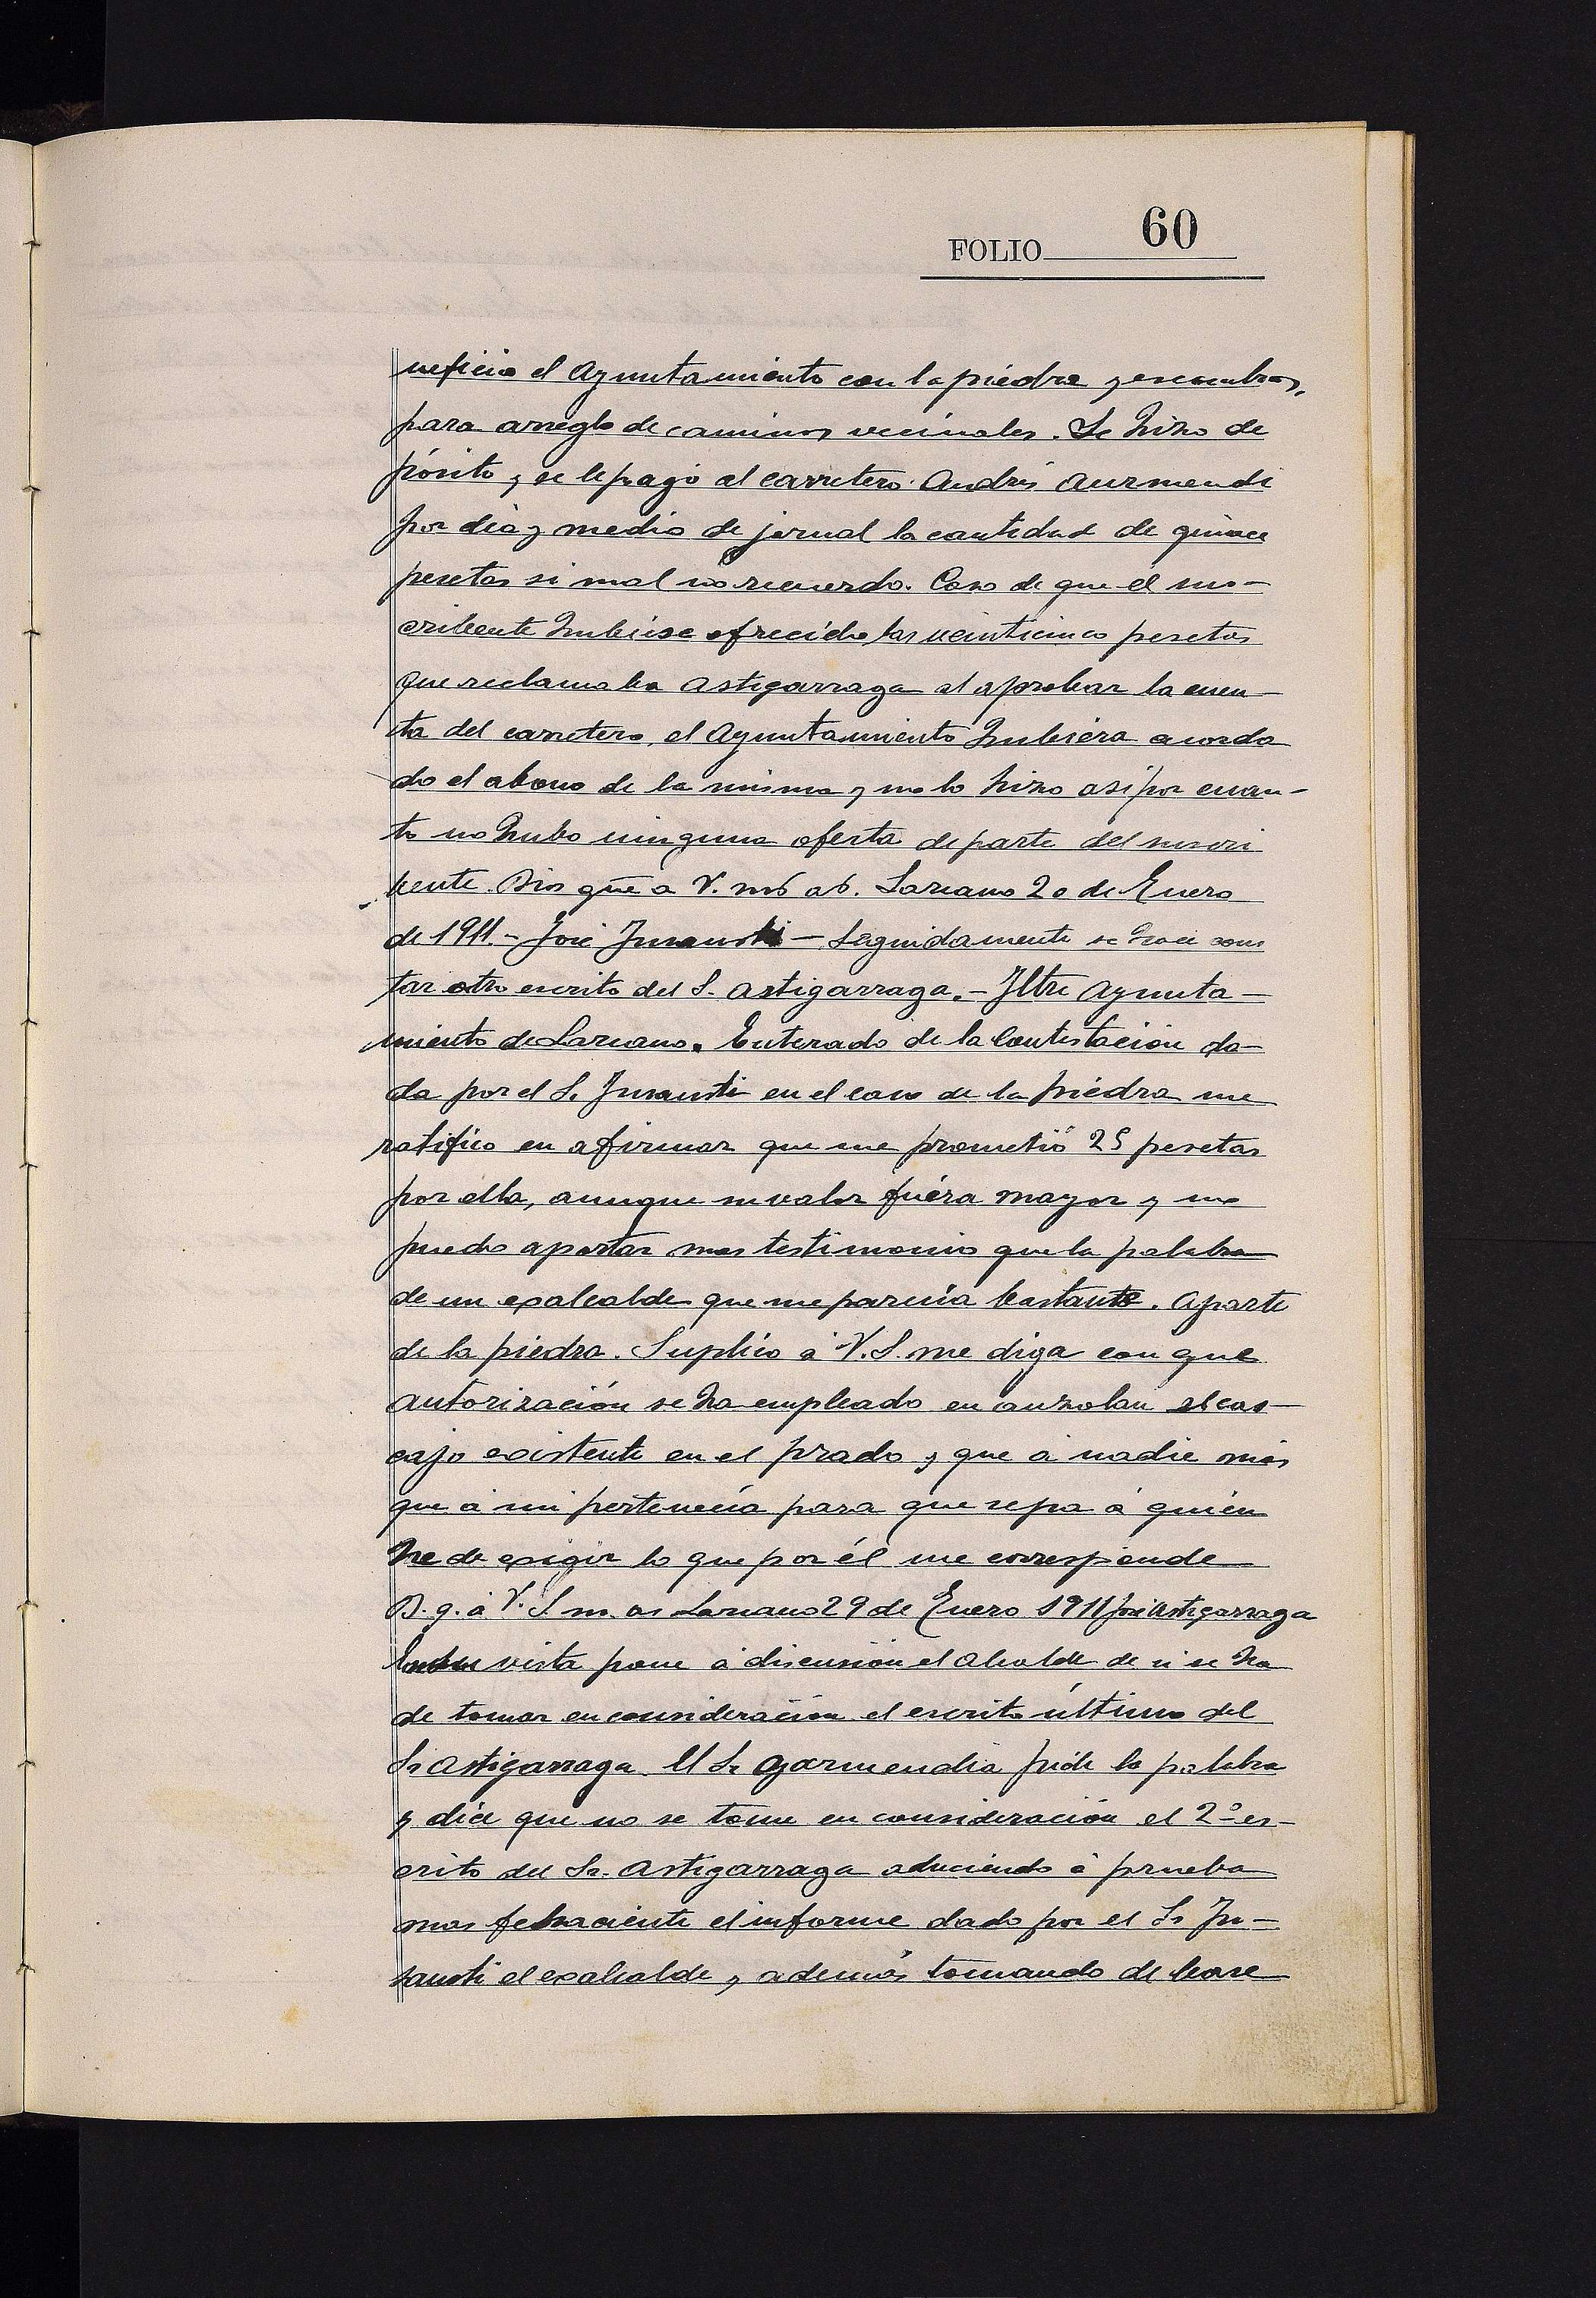 FOLIO 60
neficio el Ayuntamiento con la piedra y escombros,
para arreglo de caminos vecinales. Se hizo de
pósito y se le pagó al carretero Andrés Aurmendi
por día y medio de jornal la cantidad de quince
pesetas si mal no recuerdo. Caso de que el sus-
cribente hubiese ofrecido las veinticinco pesetas
que reclamaba Astigarraga al aprobar la cuen-
ta del carretero, el Ayuntamiento hubiera acorda
do el abono de la misma y no lo hizo así por cuan-
to no hubo ninguna oferta de parte del suscri
bente. Dios gue a V. ms as. Lazcano 20 de Enero
de 1911 - José Insausti - Seguidamente se hace cons
tar otro escrito del S. Astigarraga. - Iltre Ayunta-
miento de Lazcano. Enterado de la Contestación da-
da por el S. Insausti en el caso de la piedra me
ratifico en afirmar que me prometió 25 pesetas
por ella, aunque su valor fuera mayor y no
puedo aportar mas testimonio que la palabra
de un exalcalde que me parecía bastante. Aparte
de la piedra. Suplico á V.S. me diga con que
autorización se ha empleado en auzolan el cas-
cajo existente en el prado y que á nadie más
que á mi pertenecía para que sepa á quien
he de exigir lo que por él me corresponde
D. g. á V. S. m. as Lazcano 29 de Enero 1911 José Astigarraga
vista pone á discusión el Alcalde de si se ha
de tomar en consideración el escrito último del
Sr Astigarraga. El Sr Garmendia pide la palabra
y dice que no se tome en consideración el 2º es-
crito del Sr. Astigarraga aduciendo á prueba
mas fehaciente el informe dado por el Sr In-
sausti el exalcalde, y además tomando de base